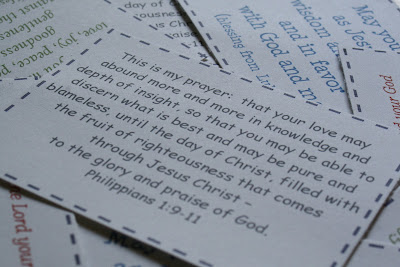 day of
righteousness
through Jesus Christ
to the
love, joy, peace, p
goodness
gentleness
wisdom a
and in favor
with God and m
(blessing from Lu
May you
as Jes
This is my prayer: that your love may
abound more and more in knowledge and
depth of insight, so that you may be able to
discern what is best and may be pure and
blameless, until the day of Christ, filled with
the fruit of righteousness that comes
through Jesus Christ –
to the glory and praise of God.
Philippians 1:9-11
your God
e Lord your